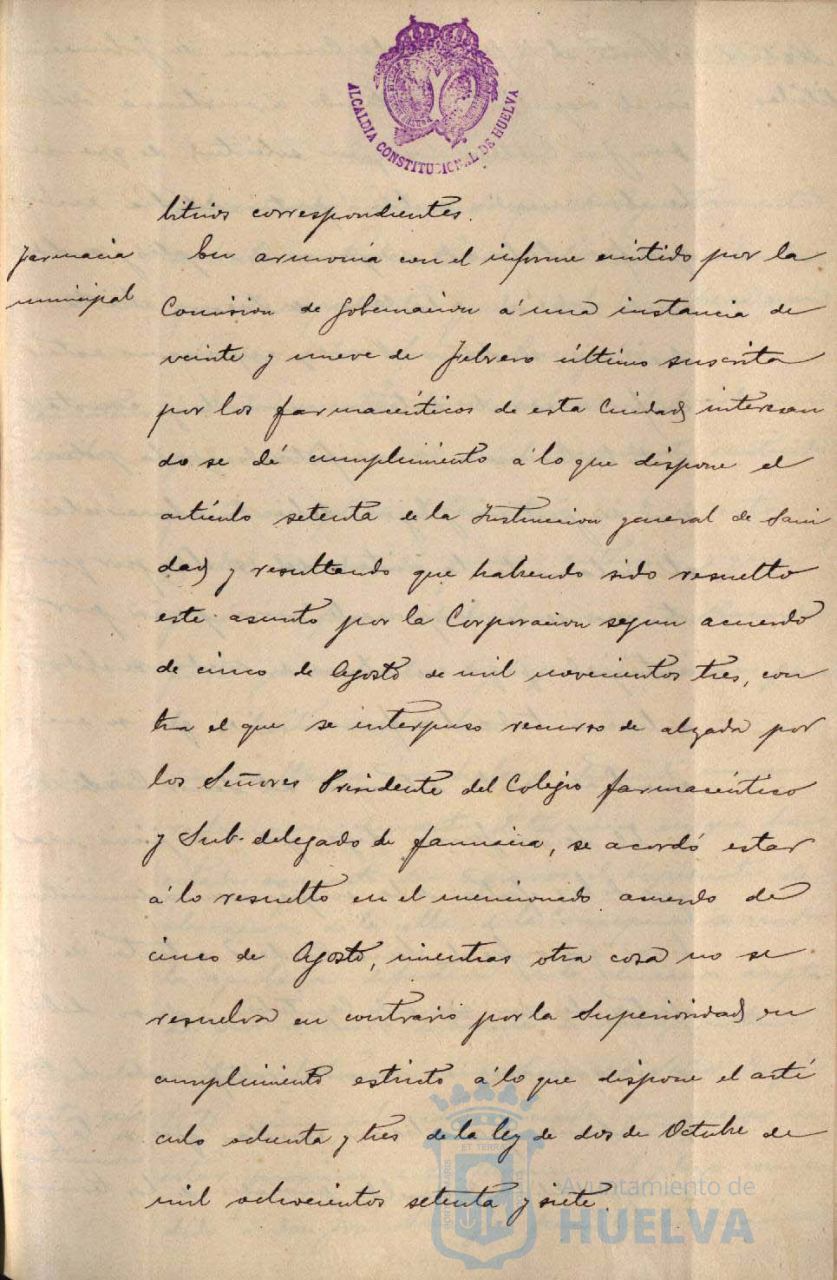 ALCALDIA CONSTITUCIONAL DE HUELVA
bitrios correspondientes.
Farmacia
municipal
En armonia con el informe emitido por la
Comision de Gobernacion á una instancia de
veinte y nueve de Febrero último suscrita
por los farmacéuticos de esta Ciudad interesan
do se dé cumplimiento á lo que dispone el
artículo setenta de la Instruccion general de Sani
dad y resultando que habiendo sido resuelto
este asunto por la Corporacion segun acuerdo
de cinco de Agosto de mil novecientos tres, con
tra el que se interpuso recurso de alzada por
los Señores Presidente del Colegio farmacéutico
y Sub-delegado de farmacia, se acordó estar
á lo resuelto en el mencionado acuerdo de
cinco de Agosto, mientras otra cosa no se
resuelva en contrario por la Superioridad en
cumplimiento estricto á lo que dispone el artí
culo ochenta y tres de la ley de dos de Octubre de
mil ochocientos setenta y siete.
Ayuntamiento de
HUELVA